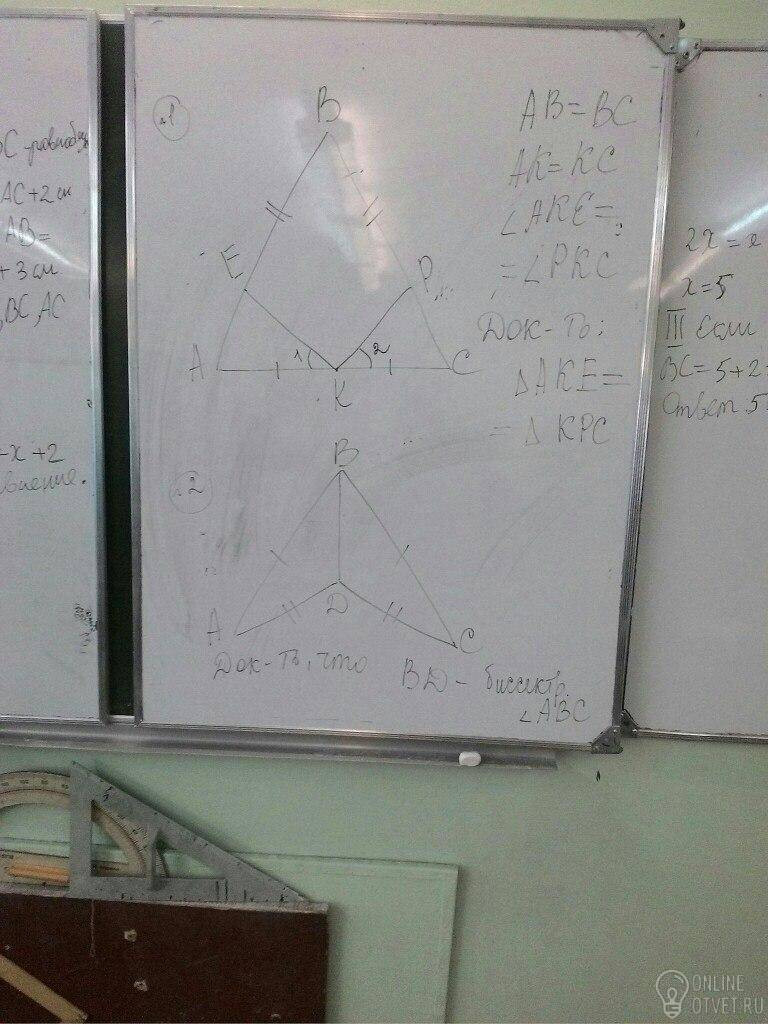 С равноб
AC + 2 см
AB =
+ 3 см
BC, AC
- x + 2
№1
B
E
P
A
1
2
C
K
AB = BC
AK = KC
∠AKE =
= ∠PKC
Док-ть:
△AKE =
= △KPC
№2
B
D
A
C
Док-ть, что
BD - биссектр.
∠ABC
2x =
x = 5
III Если
BC = 5 + 2
Ответ 5
ONLINE
OTVET.RU